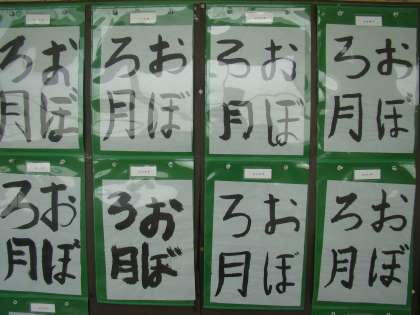 おぼ
ろ月
おぼ
ろ月
おぼ
ろ月
おぼ
ろ月
おぼ
ろ月
おぼ
ろ月
おぼ
ろ月
おぼ
ろ月